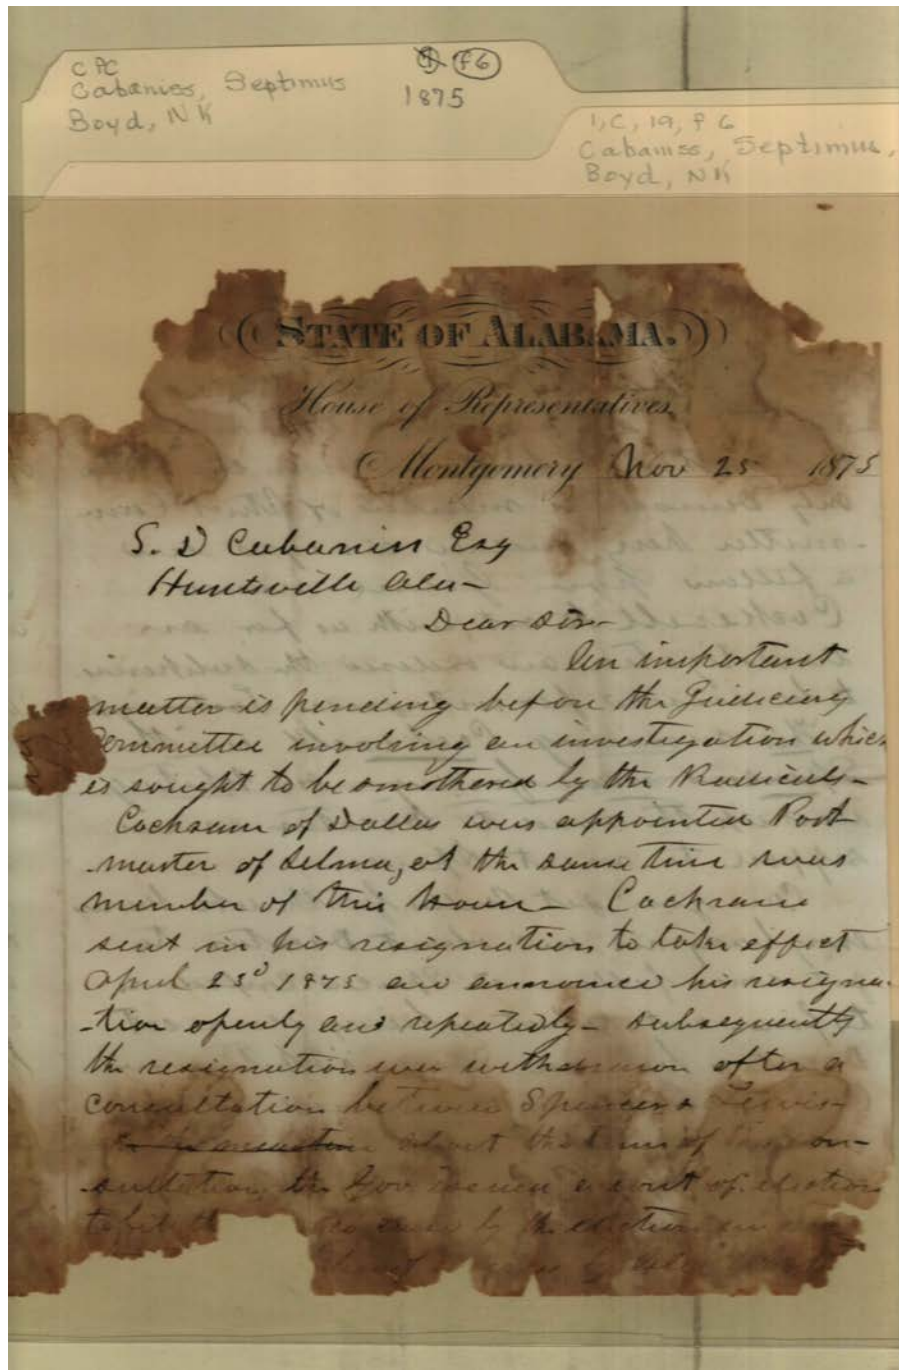 CPC
Cabaniss, Septimus
Boyd, NK
F6
1875
1, C, 19, F 6
Cabaniss, Septimus,
Boyd, NK
STATE OF ALABAMA.
House of Representatives
Montgomery Nov 25 1875
S. D Cabaniss Esq
Huntsville Ala-
Dear Sir-
An important
matter is pending before the Judiciary
Committee involving an investigation which
is sought to be smothered by the Radicals-
Cochrane of Dallas was appointed Post
master of Selma, at the same time was
member of this House- Cochrane
sent in his resignation to take effect
April 23d 1875 and announce his resigna-
-tion openly and repeatedly- subsequently
the resignation was withdrawn after a
consultation between Spencer & Lewis-
about the time of con-
-sultation the Gov issued a writ of election
to fill the by the election